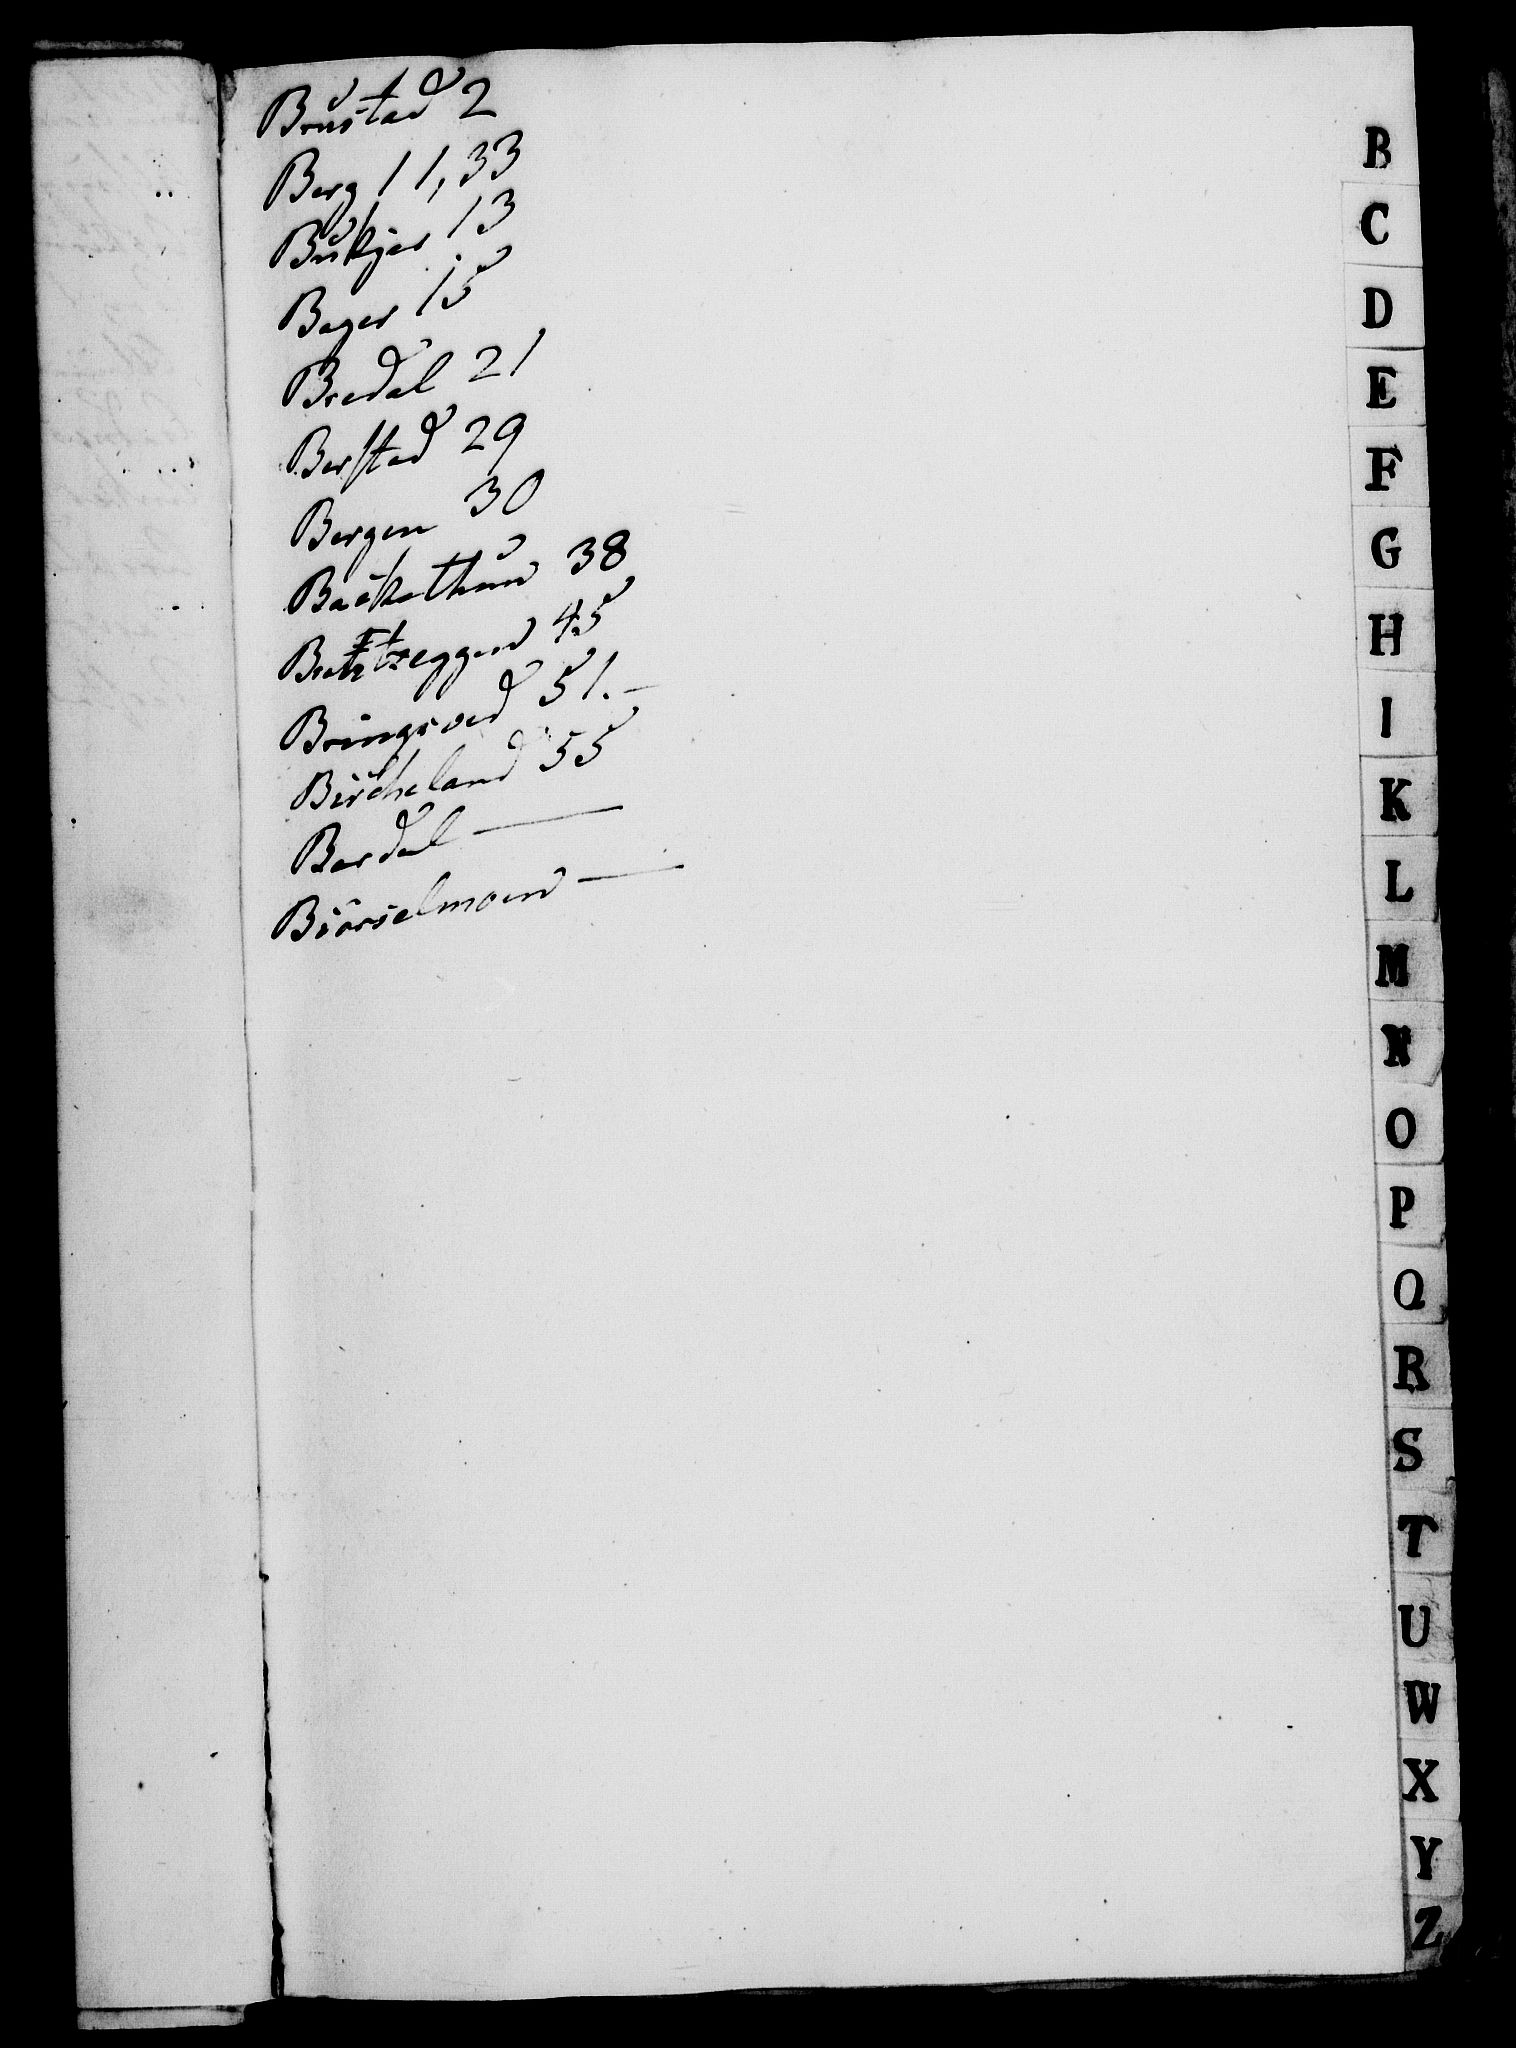 Brustad 2
Berg 11, 33
Buskjer 13
Bager 15
Bredal 21
Berstad 29
Bergen 30
Backethun 38
Bratztreggen 45
Bringsved 51.—
Bircheland 55
Berdal —
Biörselmoen —
B
C
D
E
F
G
H
I
K
L
M
N
O
P
Q
R
S
T
U
W
X
Y
Z